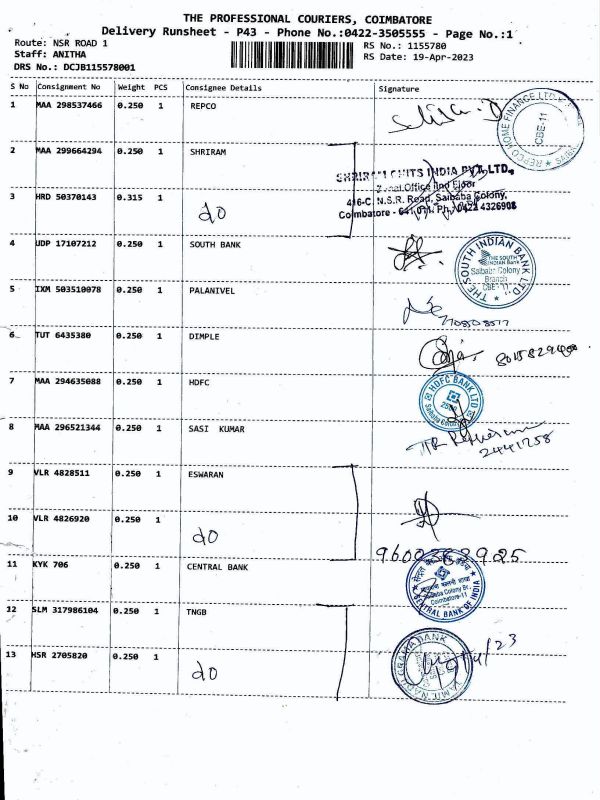 THE PROFESSIONAL COURIERS, COIMBATORE
Delivery Runsheet - P43 - Phone No.:0422-3505555 - Page No.:1
Route: NSR ROAD 1 RS No.: 1155780
Staff: ANITHA RS Date: 19-Apr-2023
DRS No.: DCJB115578001
S No Consignment No Weight PCS Consignee Details Signature
1 MAA 298537466 0.250 1 REPCO
REPCO HOME FINANCE LTD
CBE-11
2 MAA 299664294 0.250 1 SHRIRAM
SHRIRAM CHITS INDIA PVT. LTD.,
Zonal Office IInd Floor
3 HRD 50370143 0.315 1 do
416-C, N.S.R. Road, Saibaba Colony,
Coimbatore - 641 011. Ph: 0422 4326908
4 UDP 17107212 0.250 1 SOUTH BANK
THE SOUTH INDIAN BANK LTD.
THE SOUTH
INDIAN Bank
Saibaba Colony
Branch
CBE-11
5 IXM 503510078 0.250 1 PALANIVEL
6 TUT 6435380 0.250 1 DIMPLE
7 MAA 294635088 0.250 1 HDFC
HDFC BANK LTD
Saibaba Colony
8 MAA 296521344 0.250 1 SASI KUMAR
2441258
9 VLR 4828511 0.250 1 ESWARAN
10 VLR 4826920 0.250 1 do
9600363925
11 KYK 706 0.250 1 CENTRAL BANK
Saibaba Colony Br.
Coimbatore-11
CENTRAL BANK OF INDIA
12 SLM 317986104 0.250 1 TNGB
13 HSR 2705820 0.250 1 do
TAMIL NADU GRAMA BANK